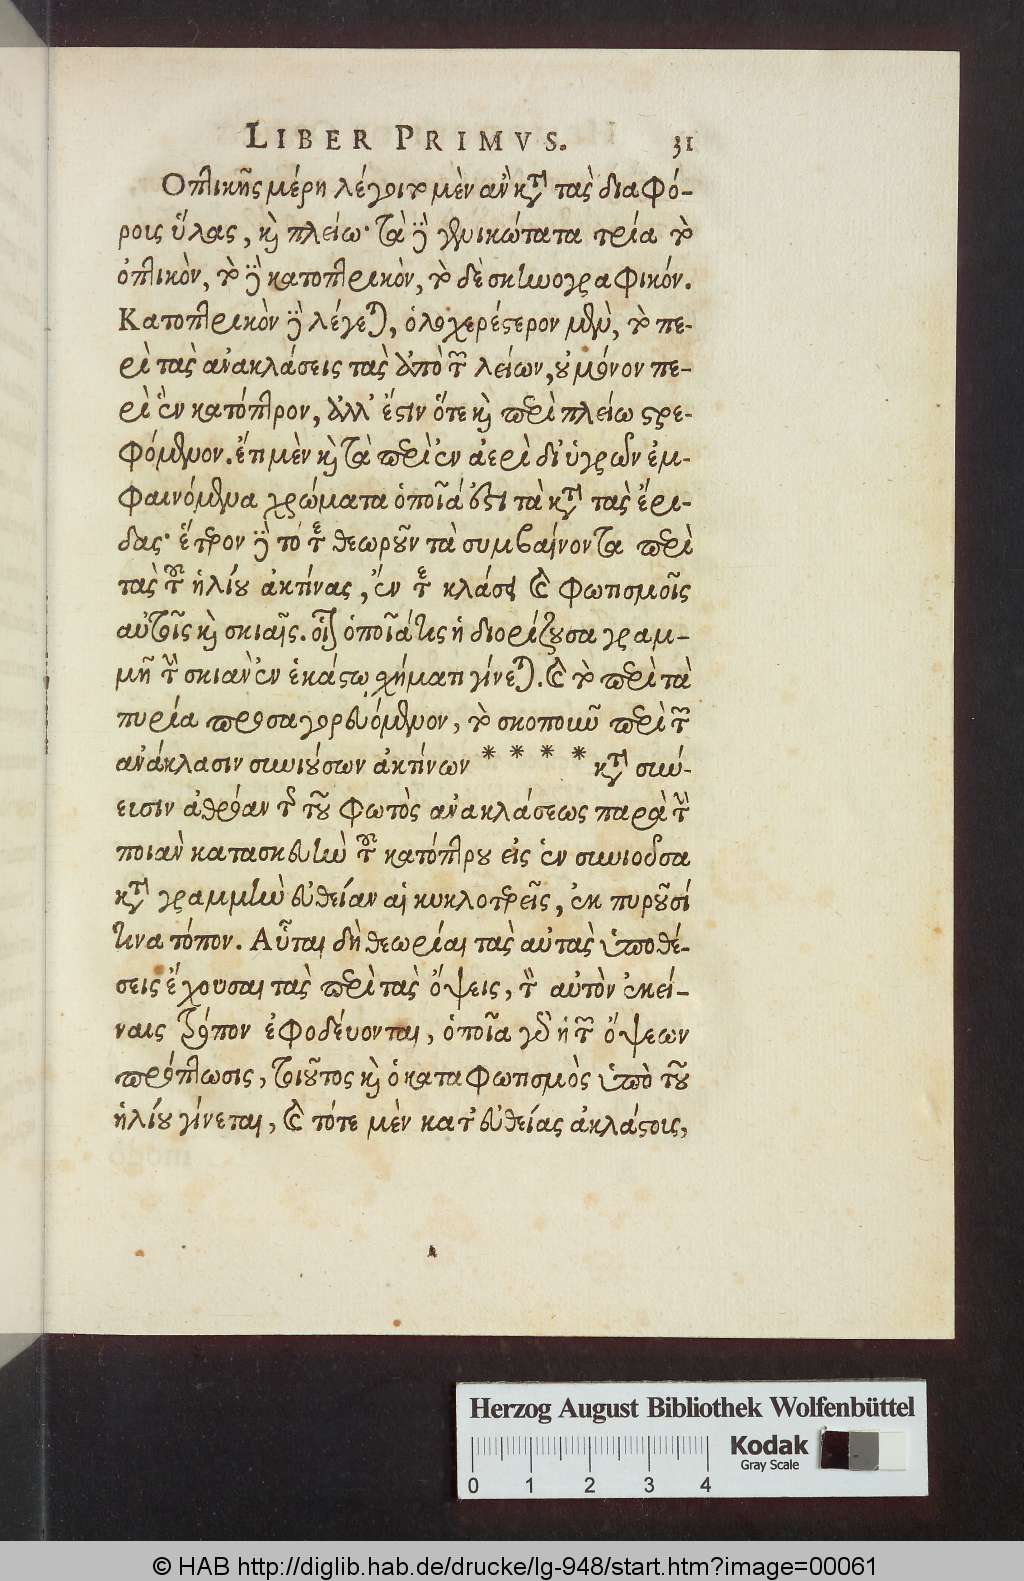 LIBER PRIMVS. 31
Ὀπτικῆς μέρη λέγοιτο μὲν ἂν κατὰ τὰς διαφό-
ροις ὕλας, καὶ πλείω· τὰ δὲ γενικώτατα τρία τὸ
ὀπτικὸν, τὸ δὲ κατοπτρικὸν, τὸ δὲ σκηνογραφικόν.
Κατοπτρικὸν δὲ λέγεται, ὁλοχερέστερον μὲν, τὸ πε-
ρὶ τὰς ἀνακλάσεις τὰς ἀπὸ τῶν λείων, οὐ μόνον πε-
ρὶ ἓν κατόπτρον, ἀλλ' ἔστιν ὅτε καὶ περὶ πλείω στρε-
φόμενον. ἔτι μὲν καὶ τὰ περὶ ἐν ἀερὶ δι' ὑγρῶν ἐμ-
φαινόμενα χρώματα ὁποῖά ἐστι τὰ κατὰ τὰς ἔρι-
δας· ἕτερον δὲ τὸ θεωροῦν τὰ συμβαίνοντα περὶ
τὰς τοῦ ἡλίου ἀκτίνας, ἔν κλάσει καὶ φωτισμοῖς
αὐτοῖς καὶ σκιαῖς. οἷον ὁποῖά τις ἡ διορίζουσα γραμ-
μὴ τὴν σκιὰν ἐν ἑκάστῳ σχήματι γίνεται. καὶ τὸ περὶ τὰ
πυρία προσαγορευόμενον, τὸ σκοποιοῦν περὶ τῶν
ἀνάκλασιν συνιουσῶν ἀκτίνων * * * * κατὰ συνύ-
εισιν ἀθρόαν τῇ τοῦ φωτὸς ἀνακλάσεως παρὰ τὴν
ποιὰν κατασκευὴν τοῦ κατόπτρου εἰς ἓν συνιοῦσα
κατὰ γραμμὴν εὐθεῖαν αἱ κυκλοτερεῖς, ἐκ πυροῦσί
τινα τόπον. Αὗται δὴ θεωρίαι τὰς αὐτὰς ὑποθέ-
σεις ἔχουσαι τὰς περὶ τὰς ὄψεις, τὸν αὐτὸν ἐκεί-
ναις τρόπον ἐφοδεύονται, ὁποῖα γὰρ ἡ τῶν ὄψεων
πρόπτωσις, τοιοῦτος καὶ ὁ καταφωτισμὸς ὑπὸ τοῦ
ἡλίου γίνεται, καὶ τότε μὲν κατ' εὐθείας ἀκλάστοις,
Herzog August Bibliothek Wolfenbüttel
Kodak
Gray Scale
0 1 2 3 4
© HAB http://diglib.hab.de/drucke/lg-948/start.htm?image=00061